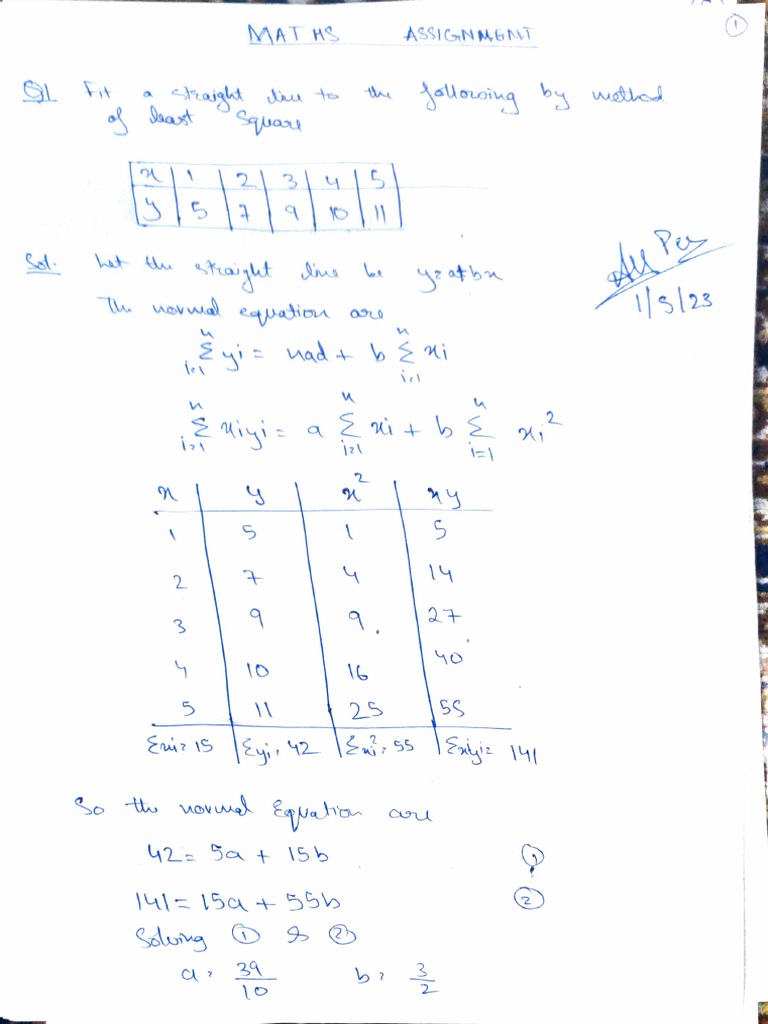 ①
MATHS ASSIGNMENT
Q1 Fit a straight line to the following by method
of least Square
x | 1 | 2 | 3 | 4 | 5
y | 5 | 7 | 9 | 10 | 11
Sol. Let the straight line be y=a+bx
The normal equation are
1/5/23
n∑i=1 yi = nad + b n∑i=1 xi
n∑i=1 xiyi = a n∑i=1 xi + b n∑i=1 xi²
x | y | x² | xy
1 | 5 | 1 | 5
2 | 7 | 4 | 14
3 | 9 | 9 | 27
4 | 10 | 16 | 40
5 | 11 | 25 | 55
∑xi=15 | ∑yi=42 | ∑xi²=55 | ∑xiyi=141
So the normal Equation are
42 = 5a + 15b ①
141 = 15a + 55b ②
Solving ① & ②
a = 39/10 b = 3/2